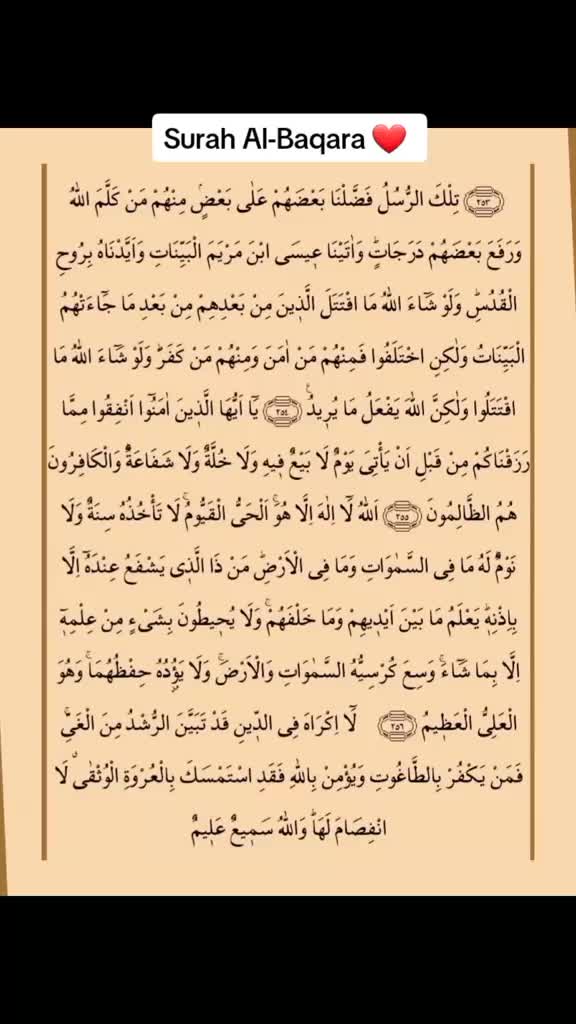 Surah Al-Baqara ❤️
﴿٢٥٣﴾ تِلْكَ الرُّسُلُ فَضَّلْنَا بَعْضَهُمْ عَلٰى بَعْضٍۢ مِنْهُمْ مَنْ كَلَّمَ اللّٰهُ
وَرَفَعَ بَعْضَهُمْ دَرَجَاتٍۜ وَاٰتَيْنَا ع۪يسَى ابْنَ مَرْيَمَ الْبَيِّنَاتِ وَاَيَّدْنَاهُ بِرُوحِ
الْقُدُسِۜ وَلَوْ شَٓاءَ اللّٰهُ مَا اقْتَتَلَ الَّذ۪ينَ مِنْ بَعْدِهِمْ مِنْ بَعْدِ مَا جَٓاءَتْهُمُ
الْبَيِّنَاتُ وَلٰكِنِ اخْتَلَفُوا فَمِنْهُمْ مَنْ اٰمَنَ وَمِنْهُمْ مَنْ كَفَرَۜ وَلَوْ شَٓاءَ اللّٰهُ مَا
اقْتَتَلُوا وَلٰكِنَّ اللّٰهَ يَفْعَلُ مَا يُر۪يدُ۟ ﴿٢٥٤﴾ يَٓا اَيُّهَا الَّذ۪ينَ اٰمَنُٓوا اَنْفِقُوا مِمَّا
رَزَقْنَاكُمْ مِنْ قَبْلِ اَنْ يَأْتِيَ يَوْمٌ لَا بَيْعٌ ف۪يهِ وَلَا خُلَّةٌ وَلَا شَفَاعَةٌۜ وَالْكَافِرُونَ
هُمُ الظَّالِمُونَ ﴿٢٥٥﴾ اَللّٰهُ لَٓا اِلٰهَ اِلَّا هُوَۚ اَلْحَيُّ الْقَيُّومُۚ لَا تَأْخُذُهُ سِنَةٌ وَلَا
نَوْمٌۜ لَهُ مَا فِي السَّمٰوَاتِ وَمَا فِي الْاَرْضِۜ مَنْ ذَا الَّذ۪ي يَشْفَعُ عِنْدَهُٓ اِلَّا
بِاِذْنِه۪ۜ يَعْلَمُ مَا بَيْنَ اَيْد۪يهِمْ وَمَا خَلْفَهُمْۚ وَلَا يُح۪يطُونَ بِشَيْءٍ مِنْ عِلْمِه۪ٓ
اِلَّا بِمَا شَٓاءَۚ وَسِعَ كُرْسِيُّهُ السَّمٰوَاتِ وَالْاَرْضَۚ وَلَا يَؤُ۫دُهُ حِفْظُهُمَاۚ وَهُوَ
الْعَلِيُّ الْعَظ۪يمُ ﴿٢٥٦﴾ لَٓا اِكْرَاهَ فِي الدّ۪ينِ قَدْ تَبَيَّنَ الرُّشْدُ مِنَ الْغَيِّۚ
فَمَنْ يَكْفُرْ بِالطَّاغُوتِ وَيُؤْمِنْ بِاللّٰهِ فَقَدِ اسْتَمْسَكَ بِالْعُرْوَةِ الْوُثْقٰىۗ لَا
انْفِصَامَ لَهَاۜ وَاللّٰهُ سَم۪يعٌ عَل۪يمٌ